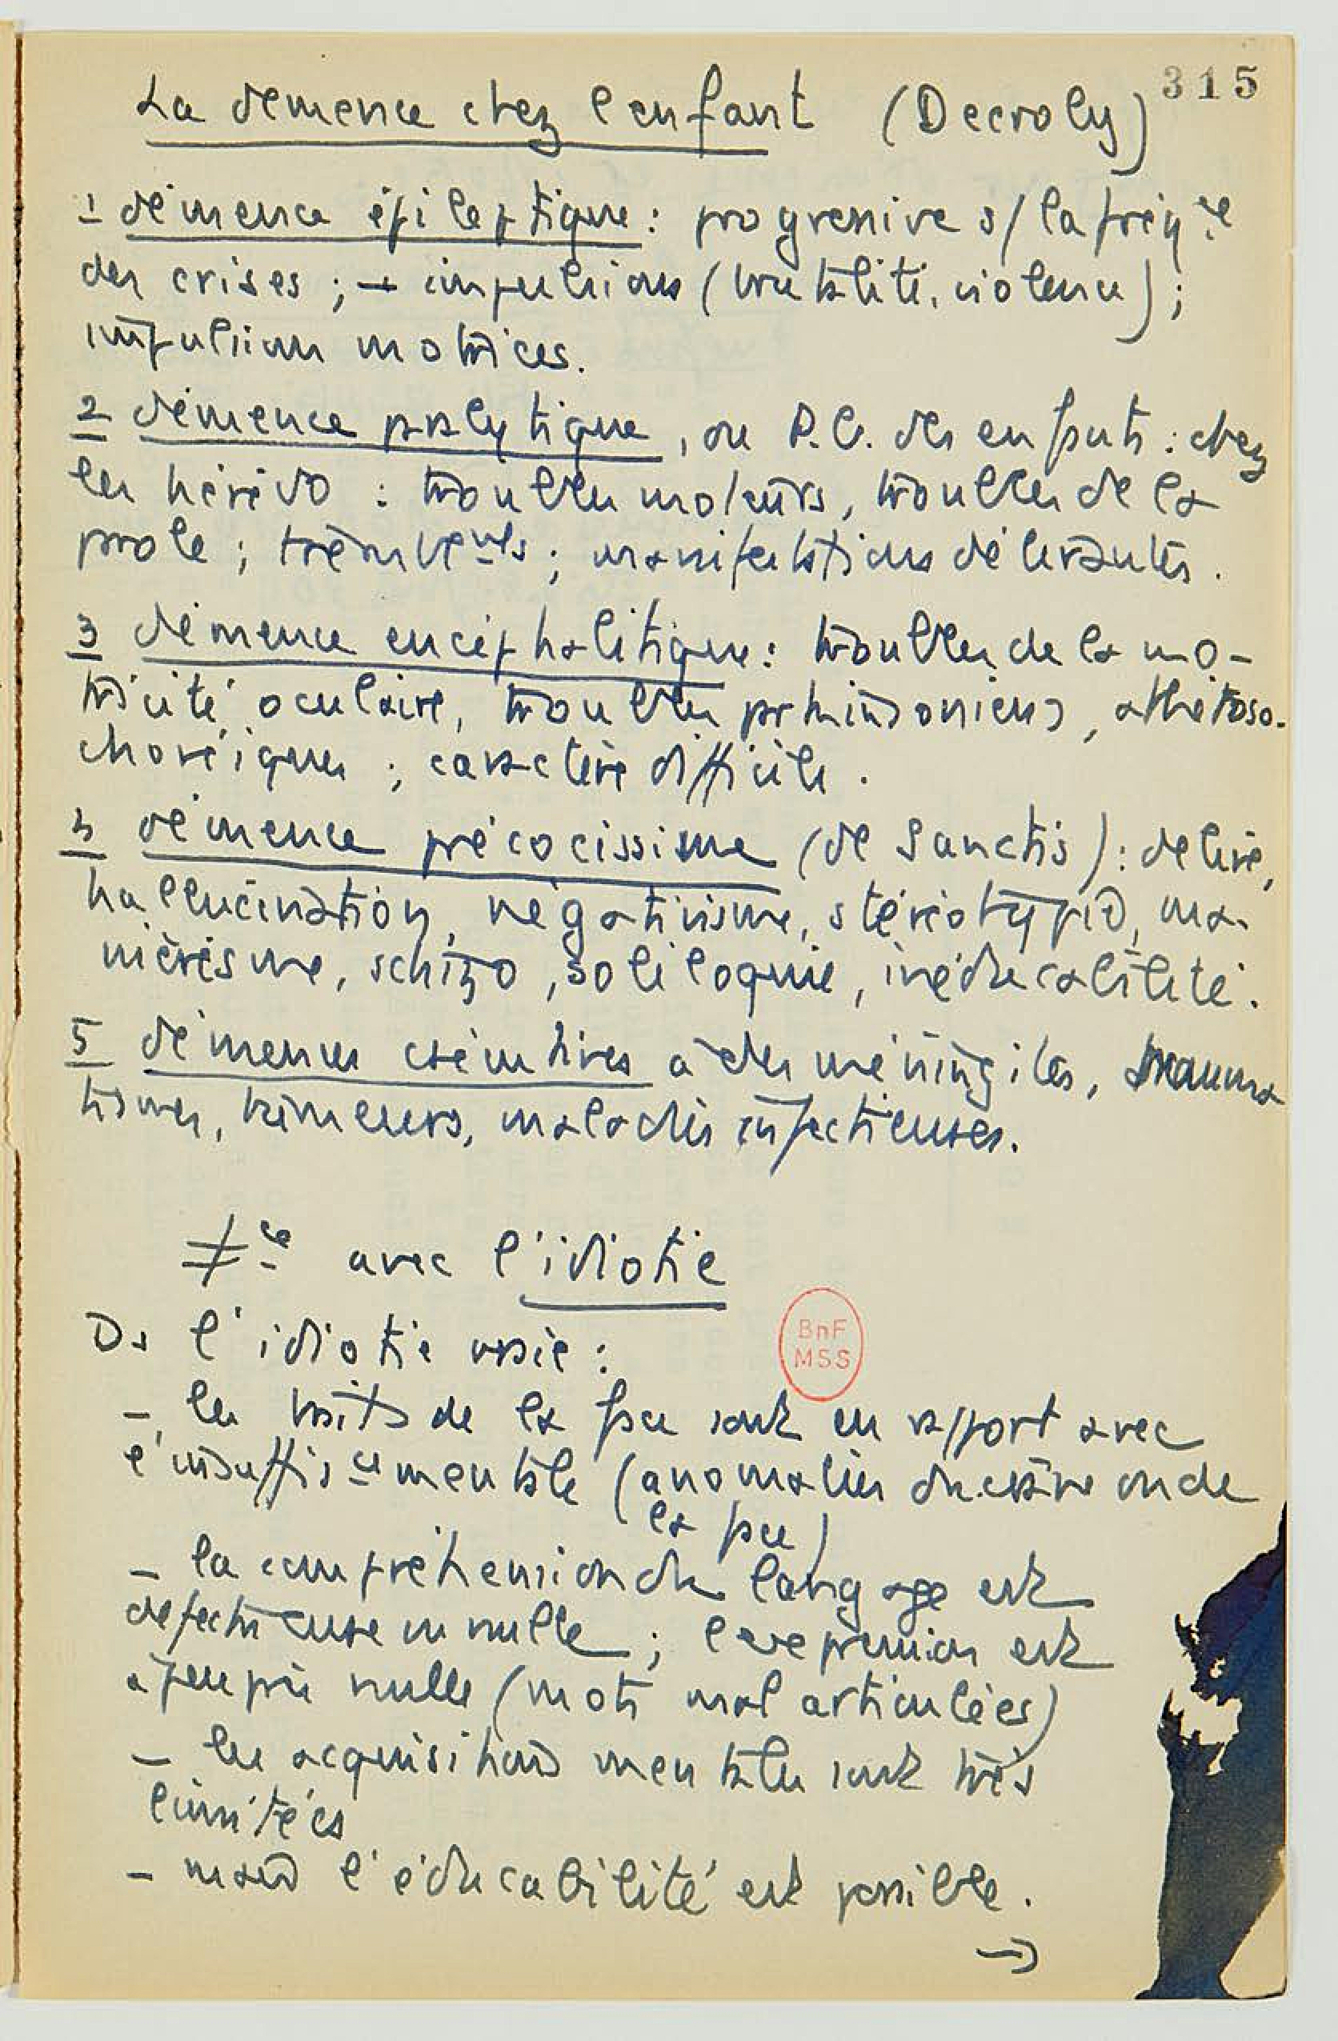 315
La démence chez l'enfant (Decroly)
1 démence épileptique : progressive s/ la fréq.ce
des crises ; → impulsions (brutalité, violence) ;
impulsion motrices.
2 démence paralytique, ou P.G. des enfants : chez
les hérédo : troubles moteurs, troubles de la
parole ; tremblemts ; manifestations délirantes.
3 démence encéphalitique : troubles de la mo-
tricité oculaire, troubles parkinsoniens, athétoso-
choréiques ; caractère difficile.
4 démence précocissime (de Sanctis) : délire,
hallucination, négativisme, stéréotypie, ma-
niérisme, schizo, soliloquie, inéducabilité.
5 démences consécutives à des méningites, trauma
tismes, tumeurs, maladies infectieuses.
≠ce avec l'idiotie
Ds l'idiotie vraie :
- les traits de la face sont en rapport avec
l'insuffisce mentale (anomalies du crâne ou de
la face)
- la compréhension du langage est
défectueuse ou nulle ; l'expression est
à peu près nulle (mots mal articulées)
- les acquisitions mentales sont très
limitées
- mais l'éducabilité est possible.
→
BnF
MSS